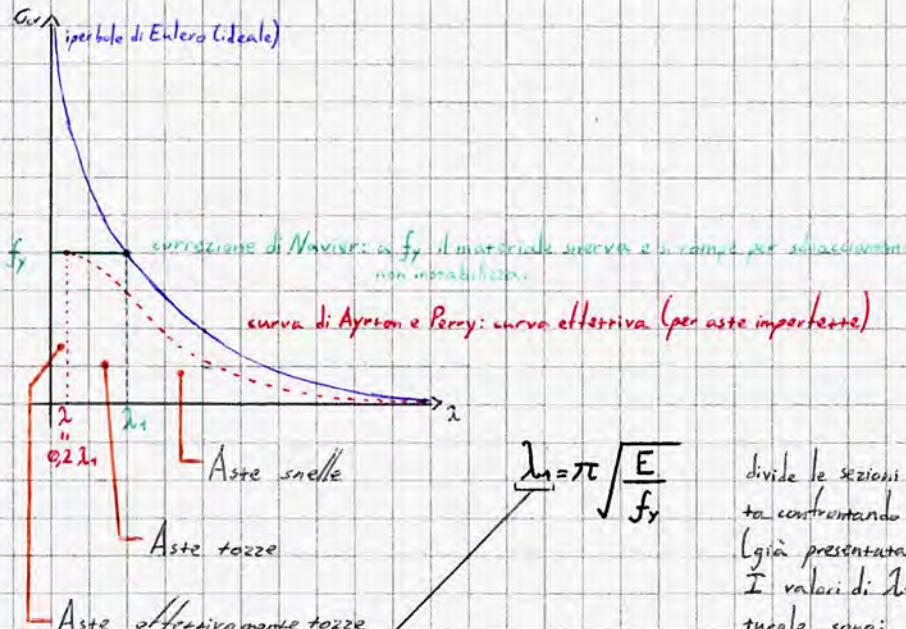 σcr
iperbole di Eulero (ideale)
fy
correzione di Navier: a fy il materiale snerva e si rompe per schiacciamen
non instabilizza.
curva di Ayrton e Perry: curva effettiva (per aste imperfette)
λ
λ
λ1
"
0,2 λ1
Aste snelle
Aste tozze
Aste effettivamente tozze
λ1 = π √(E/fy)
divide le sezioni
ta confrontando
(già presentata
I valori di λ
turale sono: